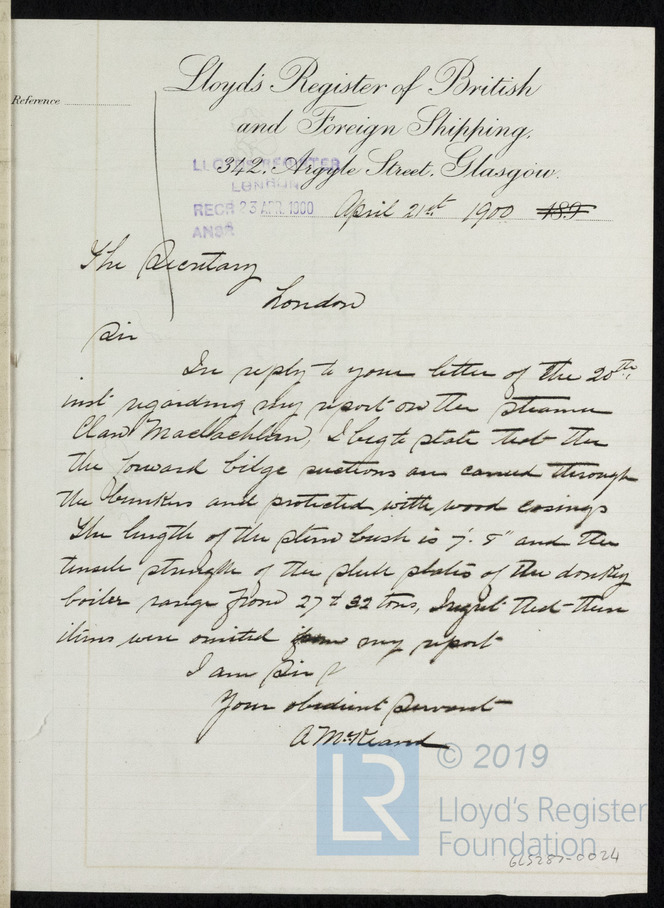 Lloyd's Register of British
and Foreign Shipping.
Reference
342, Argyle Street, Glasgow.
LLOYD'S REGISTER
LONDON
RECD 23 APR. 1900
ANSD
April 21st 1900 189
The Secretary
London
Sir
In reply to your letter of the 20th
inst regarding my report on the steamer
"Clan Maclachlan", I beg to state that the
the forward bilge suctions are carried through
the bunkers and protected with wood casings
The length of the stern bush is 7'. 8" and the
tensile strength of the shell plates of the donkey
boiler range from 27 to 32 tons, I regret that these
items were omitted from my report
I am Sir
Your obedient Servant
A McKeand
LR
© 2019
Lloyd's Register
Foundation
GLS287-0024